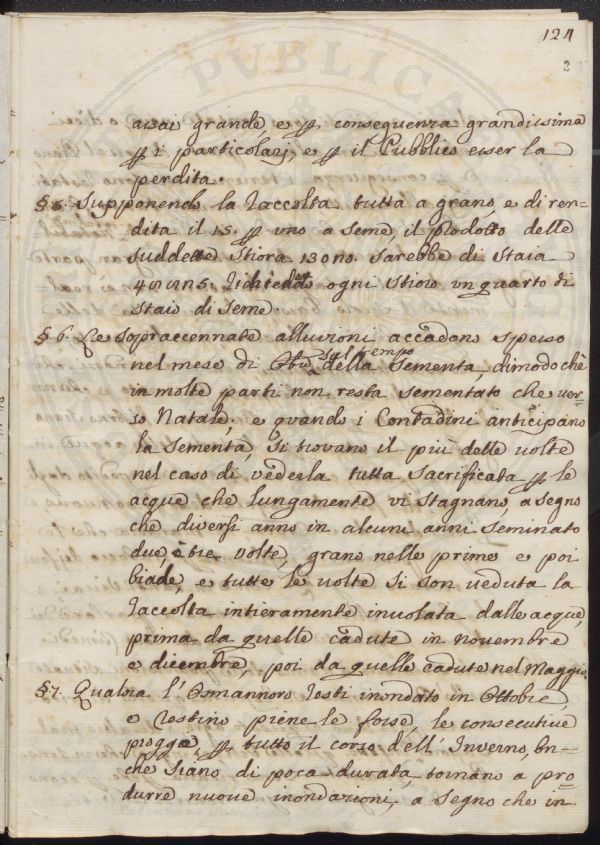 124
2
assai grande, e p conseguenza grandissima
p i particolari, e p il Pubblico esser la
perdita.
§ 5. Supponendo la Raccolta tutta a grano, e di ren=
dita il 15. p uno a seme, il prodotto delle
suddette Stiora sarebbe di staia
ogni stioro un quarto di
staio di seme.
§. 6. Le sopraccennate alluvioni accadono spesso
nel mese di Obre sul tempo della Sementa, dimodochè
in molte parti non resta sementato che ver=
so Natale; e quando i Contadini anticipano
la sementa, si trovano il più delle volte
nel caso di vederla tutta sacrificata p le
acque che lungamente vi stagnano, a segno
che diversi anno in alcuni anni seminato
due, o tre volte, grano nelle prime e poi
biade, e tutte le volte si son veduta la
Raccolta intieramente involata dalle acque,
prima da quelle cadute in novembre
e dicembre, poi da quelle cadute nel Maggio.
§ 7. Qualora l'Osmannoro resti inondato in Ottobre,
e restino piene le fosse, le consecutive
piogge, p tutto il corso dell' Inverno, ben=
chè siano di poca durata, tornano a pro=
durre nuove inondazioni, a segno che in